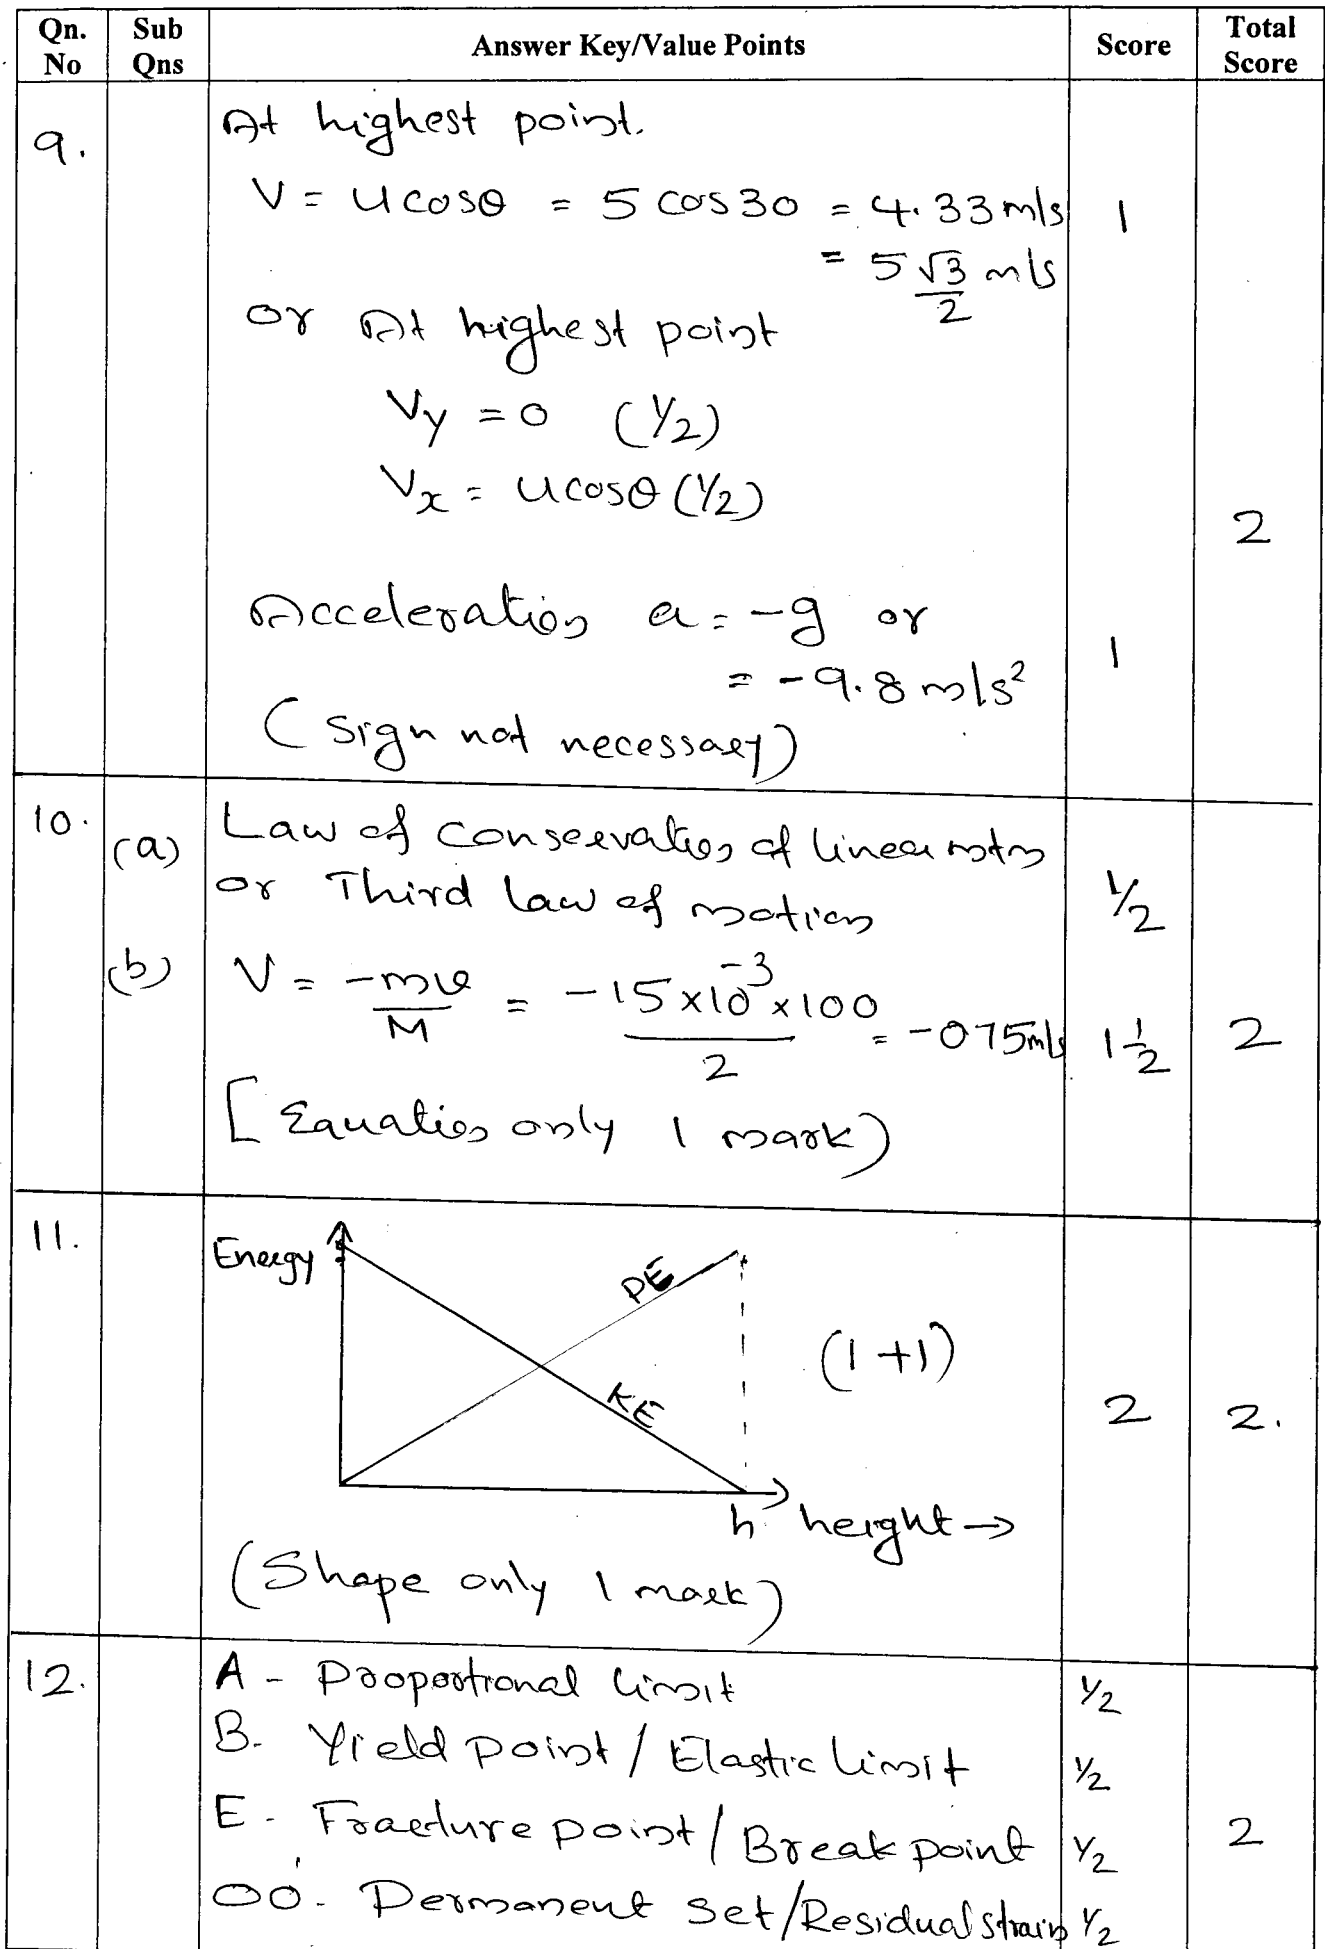 Qn. No | Sub Qns | Answer Key/Value Points | Score | Total Score
9. At highest point.
V = u cosθ = 5 cos30 = 4.33 m/s 1
= 5 √3/2 m/s
or At highest point
Vy = 0 (½)
Vx = u cosθ (½)
2
Acceleration a = -g or
= -9.8 m/s² 1
(Sign not necessary)
10. (a) Law of conservation of linear mtm
or Third law of motion ½
(b) V = -mv/M = -15 x 10⁻³ x 100 / 2 = -075 m/s 1½ 2
[Equation only 1 mark)
11. Energy PE
KE
(1+1)
2 2.
h height →
(Shape only 1 mark)
12. A - Proportional limit ½
B. Yield point / Elastic limit ½
E - Fracture point / Break point ½ 2
OO'. Permanent Set/Residual strain ½